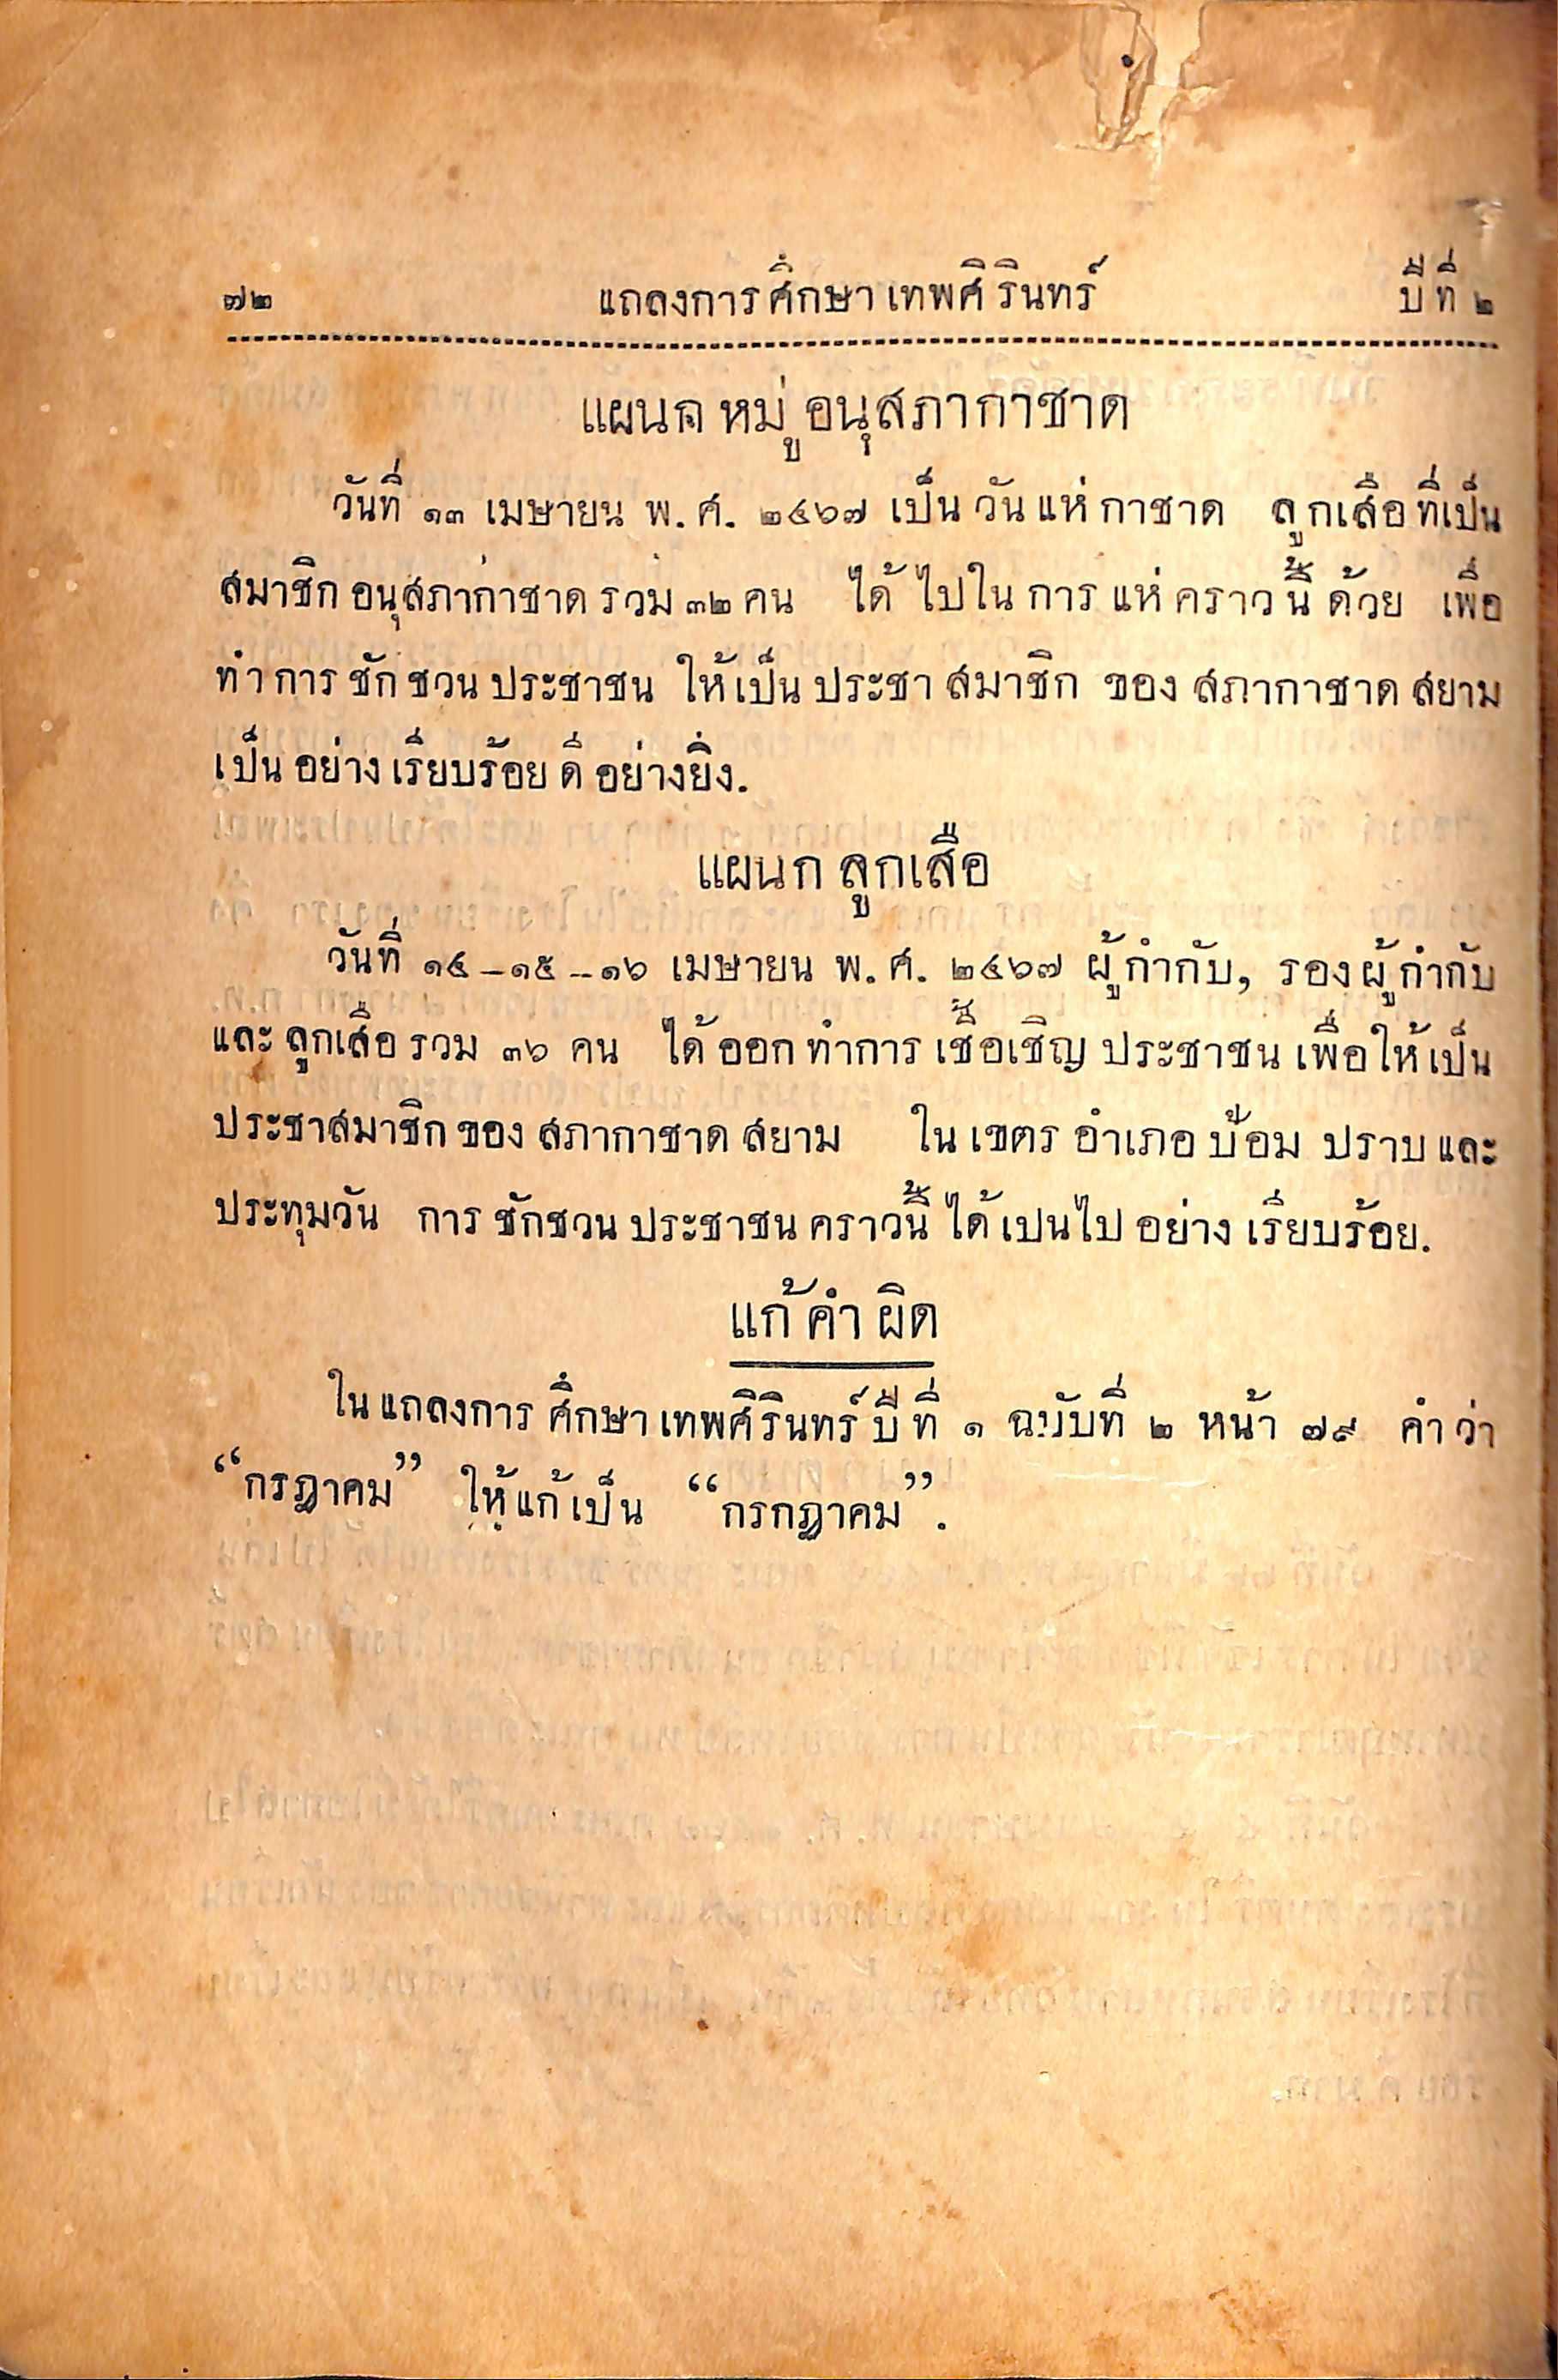 ๗๒ แถลงการศึกษาเทพศิรินทร์ ปีที่ ๒
แผนก หมู่อนุสภากาชาด
วันที่ ๑๓ เมษายน พ.ศ. ๒๔๖๗ เป็นวันแห่กาชาด ลูกเสือที่เป็น
สมาชิกอนุสภากาชาดรวม ๓๒ คน ได้ไปในการแห่คราวนี้ด้วย เพื่อ
ทำการชักชวนประชาชน ให้เป็นประชาสมาชิก ของสภากาชาดสยาม
เป็นอย่างเรียบร้อยดีอย่างยิ่ง.
แผนก ลูกเสือ
วันที่ ๑๔–๑๕–๑๖ เมษายน พ.ศ. ๒๔๖๗ ผู้กำกับ, รองผู้กำกับ
และลูกเสือรวม ๓๖ คน ได้ออกทำการเชื้อเชิญประชาชนเพื่อให้เป็น
ประชาสมาชิกของสภากาชาดสยาม ในเขตรอำเภอป้อมปราบและ
ประทุมวัน การชักชวนประชาชนคราวนี้ได้เปนไปอย่างเรียบร้อย.
แก้คำผิด
ในแถลงการศึกษาเทพศิรินทร์ปีที่ ๑ ฉบับที่ ๒ หน้า ๗๙ คำว่า
“กรฎาคม” ให้แก้เป็น “กรกฎาคม”.